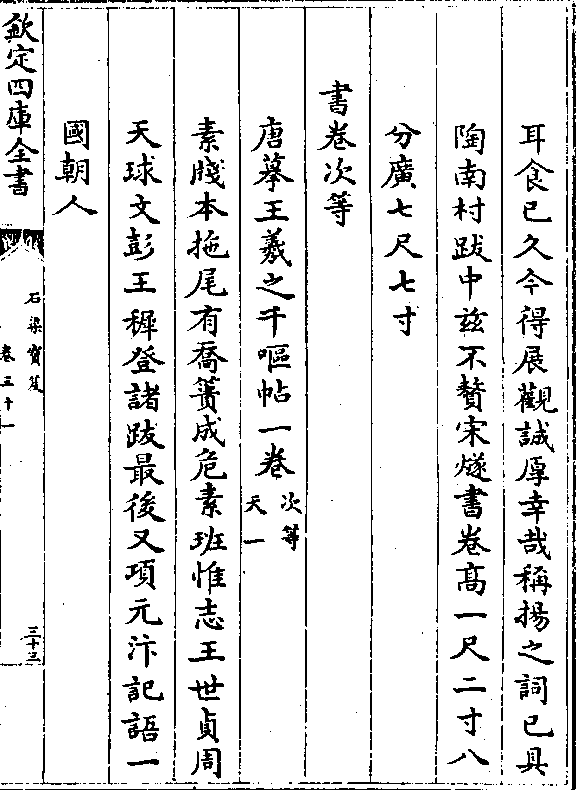 耳食已久今得展觀誠厚幸哉稱揚之詞已具
陶南村跋中兹不贅宋燧書卷高一尺二寸八
分廣七尺七寸
書卷次等
唐摹王羲之千嘔帖一卷次等天一
素牋本拖尾有喬簣成危素班惟志王世貞周
天球文彭王穉登諸跋最後又項元汴記語一
國朝人
欽定四庫全書
石渠寳笈
卷三十一
三十三